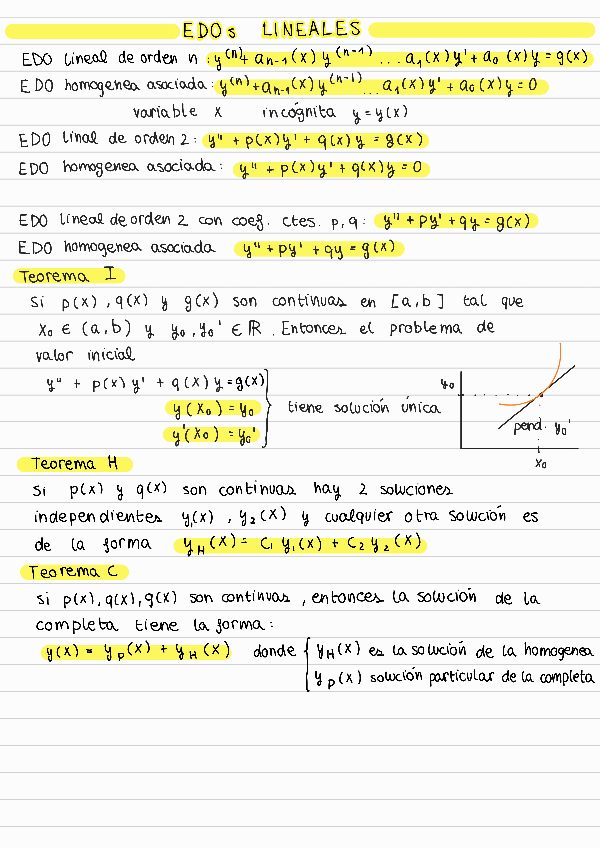 EDOs LINEALES
EDO Lineal de orden n : y⁽ⁿ⁾+ aₙ₋₁(x) y⁽ⁿ⁻¹⁾ ... a₁(x)y' + a₀(x)y = g(x)
EDO homogenea asociada: y⁽ⁿ⁾+aₙ₋₁(x)y⁽ⁿ⁻¹⁾... a₁(x)y' + a₀(x)y = 0
variable x incógnita y = y(x)
EDO Linal de orden 2: y'' + p(x)y' + q(x)y = g(x)
EDO homogenea asociada: y'' + p(x)y' + q(x)y = 0
EDO Lineal de orden 2 con coef. ctes. p, q: y'' + py' + qy = g(x)
EDO homogenea asociada y'' + py' + qy = g(x)
Teorema I
Si p(x), q(x) y g(x) son continuas en [a,b] tal que
x₀ ∈ (a,b) y y₀, y₀' ∈ ℝ. Entonces el problema de
valor inicial
y'' + p(x)y' + q(x)y = g(x)
y(x₀) = y₀ tiene solución única
y'(x₀) = y₀'
y₀
pend. y₀'
x₀
Teorema H
Si p(x) y q(x) son continuas hay 2 soluciones
independientes y₁(x), y₂(x) y cualquier otra solución es
de la forma y_H(x) = C₁ y₁(x) + C₂ y₂(x)
Teorema C
Si p(x), q(x), g(x) son continuas, entonces la solución de la
completa tiene la forma:
y(x) = y_p(x) + y_H(x) donde { y_H(x) es la solución de la homogenea
y_p(x) solución particular de la completa